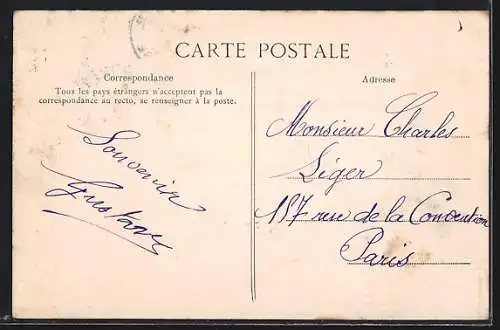 CARTE POSTALE
Correspondance
Tous les pays étrangers n'acceptent pas la
correspondance au recto, se renseigner à la poste.
Souvenir
Gustave
Adresse
Monsieur Charles
Léger
187 rue de la Convention
Paris